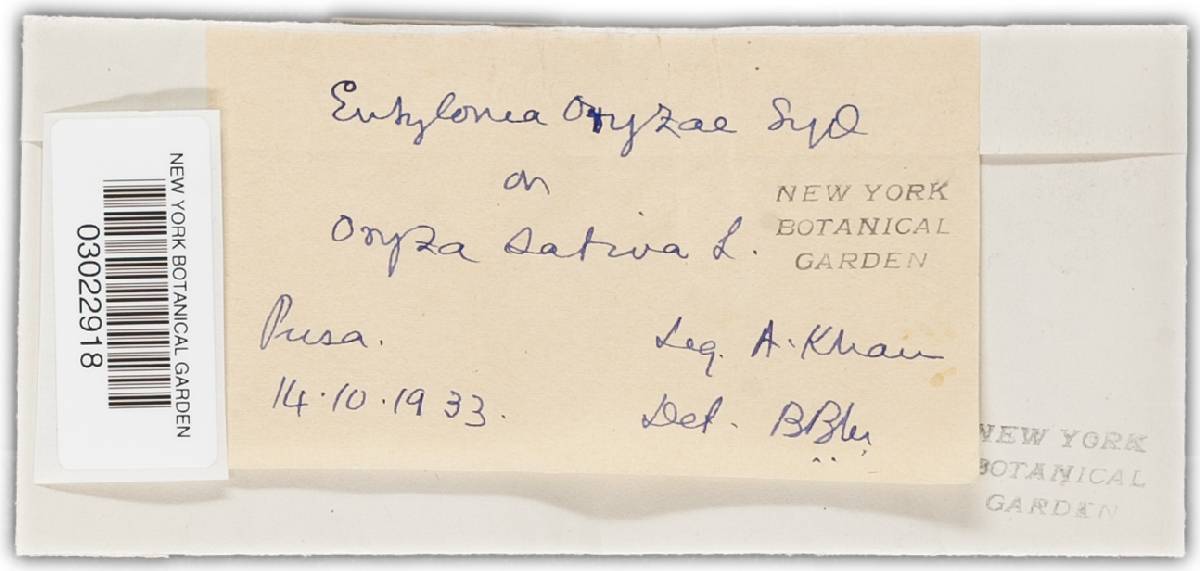 Entyloma Oryzae Syd
on
Oryza sativa L.
Pusa.
Leg. A. Khan
14.10.1933.
Det.
NEW YORK
BOTANICAL
GARDEN
NEW YORK
BOTANICAL
GARDEN
NEW YORK BOTANICAL GARDEN
03022918